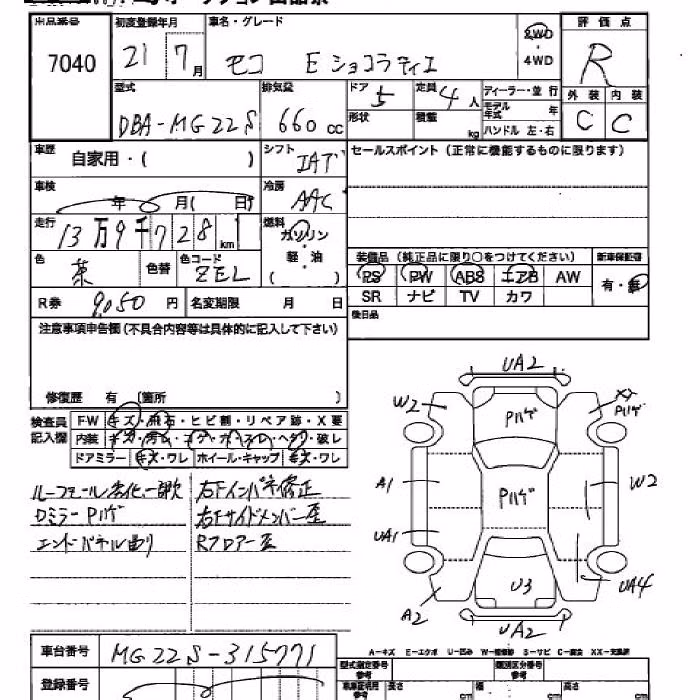 出品番号 初度登録年月 車名・グレード 2WD ・ 4WD 評価点
7040 21 7月 モコ E ショコラティエ R
型式 排気量 ドア 5 定員 4人 ディーラー・並行 外装 内装
DBA-MG22S 660cc 形状 積載 kg モデル年式 年 ハンドル 左・右 C C
車歴 自家用・( ) シフト IAT セールスポイント (正常に機能するものに限ります)
車検 年 月( 日) 冷房 AAC
走行 13万9千728km 燃料 ガソリン
軽・油 ( )
装備品 (純正品に限り○をつけてください) 新車保証書
色 茶 色替 色コード ZEL
PS PW ABS エアB AW 有・無
R券 9,050円 名変期限 月 日 SR ナビ TV カワ
注意事項申告欄 (不具合内容等は具体的に記入して下さい) 後日品
修復歴 有 (箇所 )
検査員記入欄 FW キズ・飛石・ヒビ割・リペア跡・X要
内装 キズ・汚れ・コゲ・ボコレ・ヘタリ・破レ
ドアミラー キズ・ワレ ホイール・キャップ キズ・ワレ
ルーフモール劣化一部欠 右Fインパネ修正
Dミラー Pハゲ 右Fサイドメンバー歪
エンドパネル曲り Rフロアー歪
UA2
W2 Pハゲ XX Pハゲ
A1 Pハゲ W2
UA1
U3 UA4
A2 UA2
車台番号 MG22S-315771
A-キズ E-エクボ U-凹み W-補修跡 S-サビ C-腐食 XX-交換済
登録番号
型式指定番号 参考 類別区分番号 参考
車庫証明用 参考 長さ cm 幅 cm 高さ cm